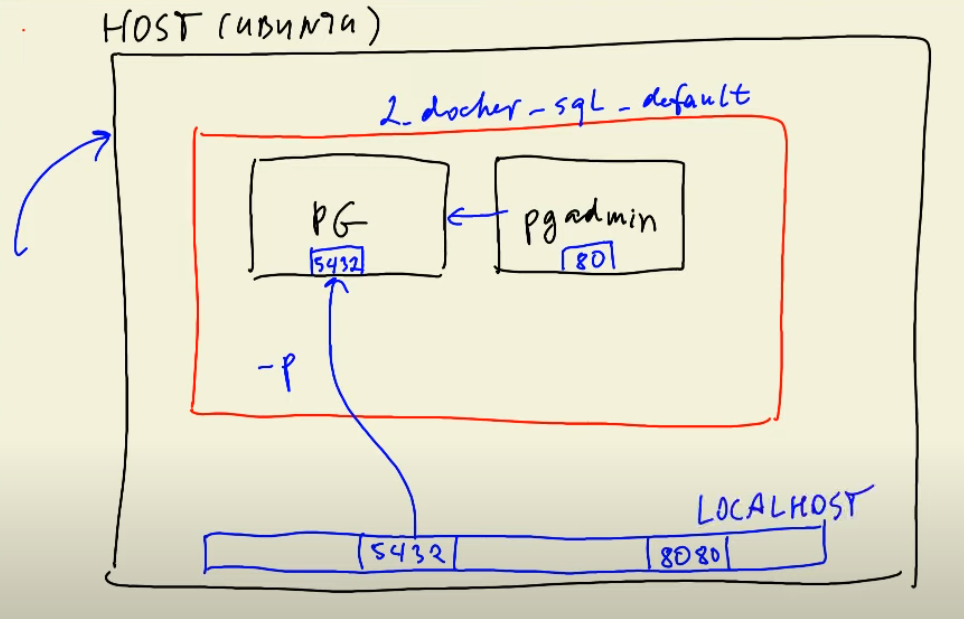 HOST (UBUNTU)
2_docker_sql_default
PG
5432
pgadmin
80
-p
LOCALHOST
5432
8080